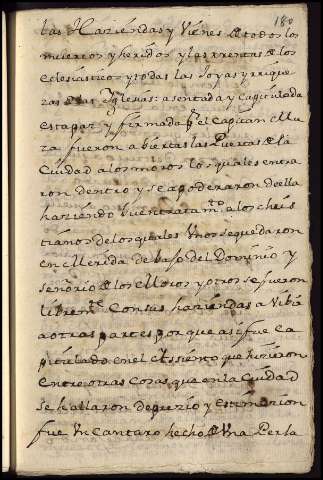 180
las Haziendas y Vienes de todos los
muertos y heridos y las rrentas de los
Eclesiasticos y todas las Joyas y rrique
zas de las Iglesias: asentada y Capitulada
esta paz y firmada por el Capitan Mu
za fueron abiertas las Puertas de la
Ciudad a los moros los quales entra
ron dentro y se apoderaron de ella
haziendo buen tratamto a los chris
tianos de los quales Vnos se quedaron
en Merida debaxo del Dominio y
señorio de los Moros y otros se fueron
libremte Con sus haziendas a Vibir
a otras partes porque asi fue Ca
pitulado en el Assiento que hizieron
Entre otras Cosas que en la Ciudad
se hallaron de prezio y estimazion
fue Vn Cantaro hecho de Vna Perla